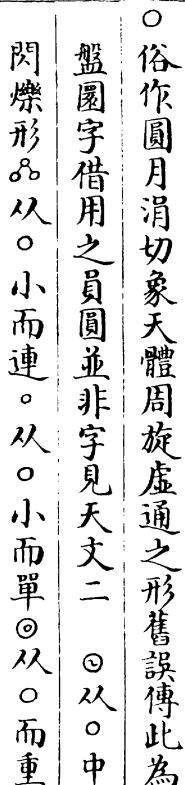 ○俗作圓月涓切象天體周旋虛通之形舊誤傳此為
盤圜字借用之員圓並非字見天文二　从○中
閃爍形从○小而連。从○小而單◎从○而重